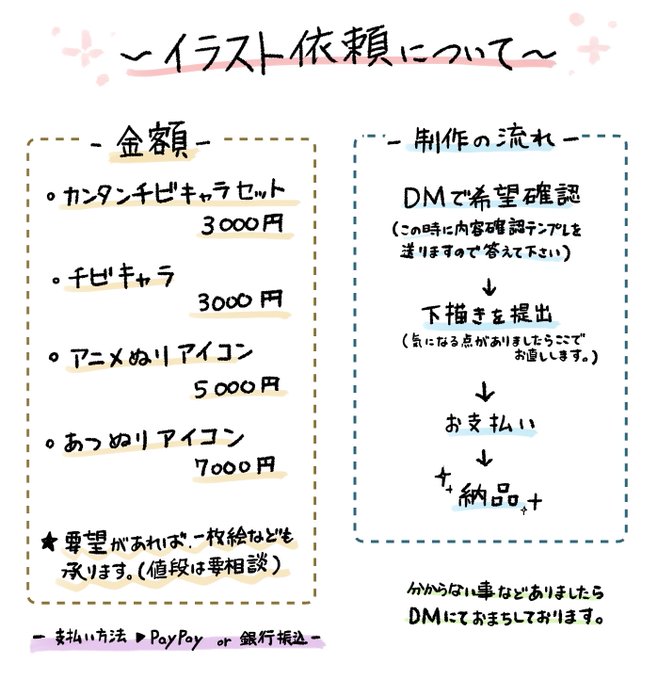 ～イラスト依頼について～
- 金額 -
○カンタンチビキャラセット
3000円
○チビキャラ
3000円
○アニメぬりアイコン
5000円
○あつぬりアイコン
7000円
★要望があれば、一枚絵なども
承ります。(値段は要相談)
- 支払い方法 ▶ PayPay or 銀行振込 -
- 制作の流れ -
DMで希望確認
(この時に内容確認テンプレを
送りますので答えて下さい)
↓
下描きを提出
(気になる点がありましたらここで
お直しします。)
↓
お支払い
↓
納品
分からない事などありましたら
DMにておまちしております。